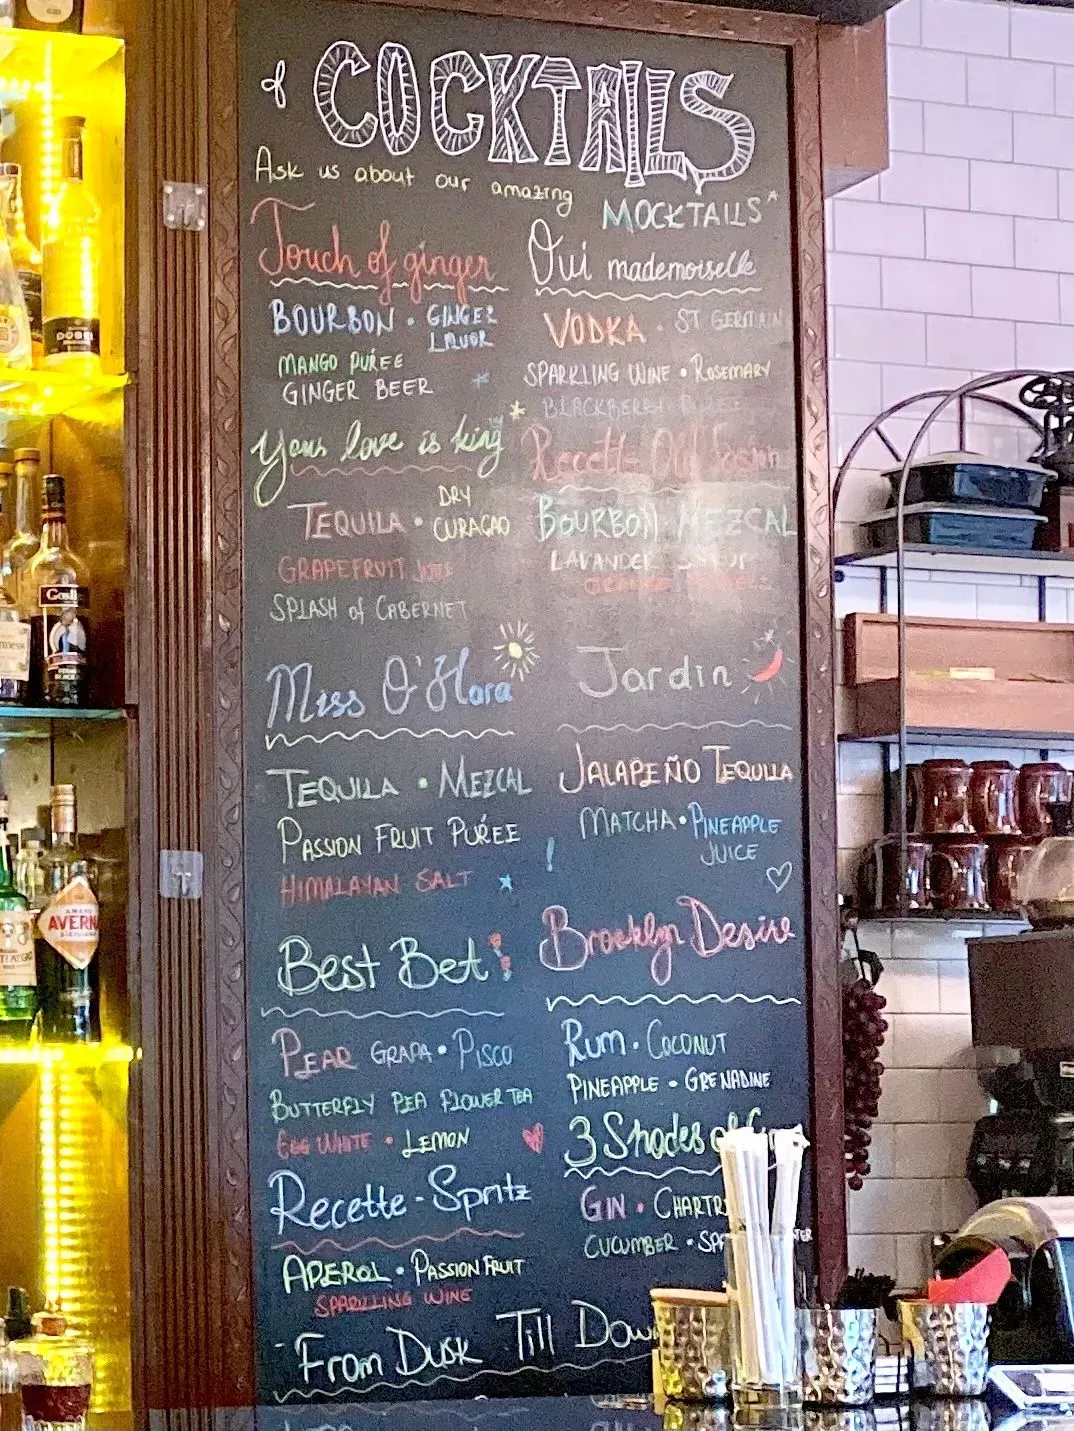 COCKTAILS
Ask us about our amazing
MOCKTAILS*
Touch of ginger
BOURBON • GINGER
LIQUOR
MANGO PURÉE
GINGER BEER
Your love is king
TEQUILA • DRY
CURAÇAO
GRAPEFRUIT JUICE
SPLASH of CABERNET
Miss O'Hara
TEQUILA • MEZCAL
PASSION FRUIT PURÉE
HIMALAYAN SALT
Best Bet
PEAR GRAPA • PISCO
BUTTERFLY PEA FLOWER TEA
EGG WHITE • LEMON
Recette - Spritz
APEROL • PASSION FRUIT
SPARKLING WINE
From Dusk Till Dawn
Oui mademoiselle
VODKA • ST GERMAIN
SPARKLING WINE • ROSEMARY
BLACKBERRY
Recette Old Fashion
BOURBON MEZCAL
LAVANDER
ORANGE
Jardin
JALAPEÑO TEQUILA
MATCHA • PINEAPPLE
JUICE
Brooklyn Desire
RUM • COCONUT
PINEAPPLE • GRENADINE
3 Shades of
GIN • CHARTR
CUCUMBER •
Gosling
AVERNA